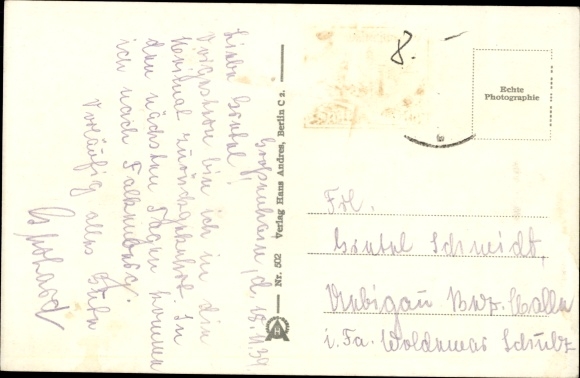 Großenhain, d. 15.11.39
Liebe Gretel!
Vorgestern bin ich in die
Heimat zurückgekehrt. In
den nächsten Tagen komme
ich nach Falkenberg.
Vorläufig alles Gute
Gerhard
Nr. 502 Verlag Hans Andres, Berlin C 2.
8. –
Echte
Photographie
Frl.
Gretel Schmidt,
Uebigau Bez. Halle
i. Fa. Woldemar Schulz